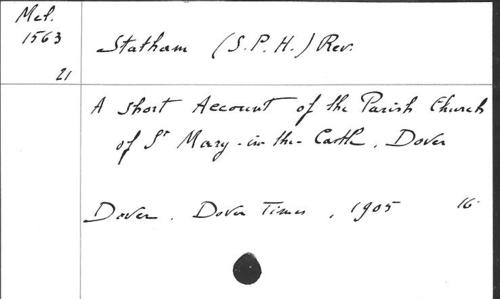 Mel.
1563
21
Statham (S.P.H.) Rev.
A short Account of the Parish Church
of St Mary-in-the-Castle, Dover
Dover. Dover Times, 1905 16